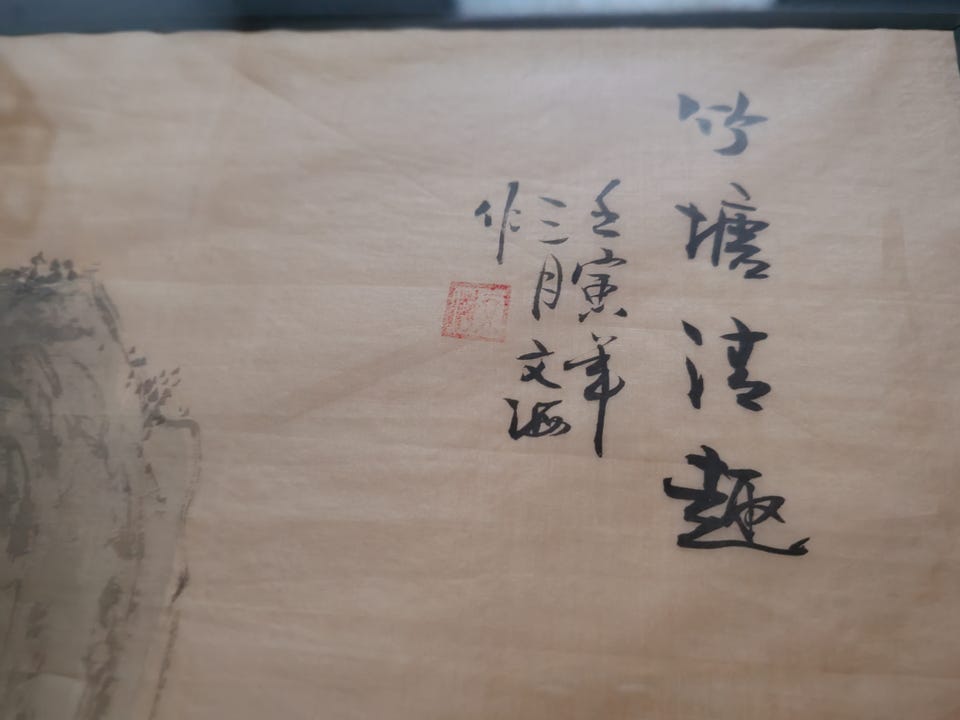 竹塘清趣
壬寅年
三月文海
作